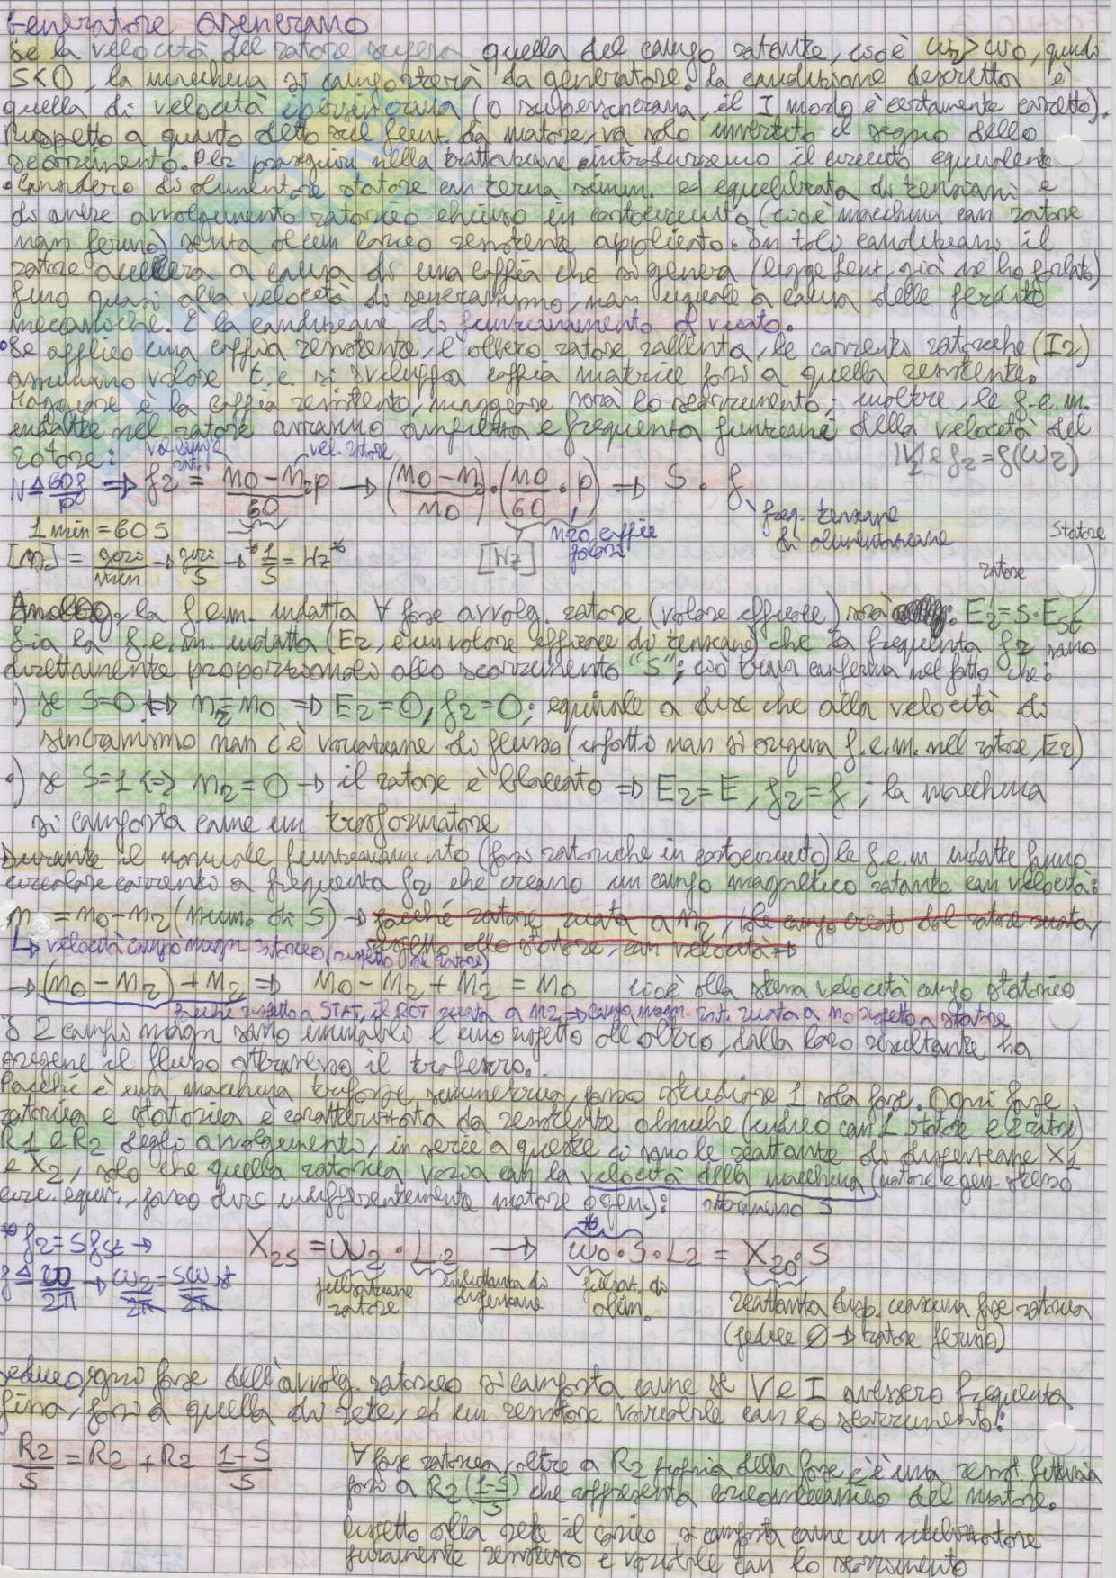 Generatore Asincrono
Se la velocità del rotore supera quella del campo rotante, cioè ω2>ω0, quindi
S<0, la macchina si comporterà da generatore. La condizione descritta è
quella di velocità ipersincrona (o supersincrona, il I modo è certamente corretto).
Rispetto a quanto detto sul funz. da motore, va solo invertito il segno dello
scorrimento. Per proseguire nella trattazione introdurremo il circuito equivalente
•Considero di alimentare statore con terna simm. ed equilibrata di tensioni e
di avere avvolgimento rotorico chiuso in cortocircuito (cioè macchina con rotore
non fermo) senza alcun carico resistente applicato. In tali condizioni il
rotore accelera a causa di una coppia che si genera (legge Lenz, già ne ho parlato)
fino quasi alla velocità di sincronismo, non uguale a causa delle perdite
meccaniche. È la condizione di funzionamento a vuoto.
•Se applico una coppia resistente, l'albero rotore rallenta, le correnti rotoriche (I2)
assumono valore t.c. si sviluppa coppia motrice pari a quella resistente.
Maggiore è la coppia resistente, maggiore sarà lo scorrimento; inoltre, le f.e.m.
indotte nel rotore avranno ampiezza e frequenza funzione della velocità del
rotore: vel. rotore f2=f(ω2)
N≜60f/p ⇒ f2 = (n0-n2)/60 p → ((n0-n2)/n0)·(n0/60 · p) ⇒ S · f
1 min = 60 s n.ro coppie poli freq. tensione di alimentazione statore
[n2] = giri/min → giri/s → 1/s = Hz [Hz] rotore
Analog. la f.e.m. indotta ∀ fase avvolg. rotore (valore efficace) sarà: E2=S·Est
Sia la f.e.m. indotta (E2, è un valore efficace di tensione) che la frequenza f2 sono
direttamente proporzionali allo scorrimento "S"; ciò trova conferma nel fatto che:
•) se S=0 ⇔ n2=n0 ⇒ E2=0, f2=0; equivale a dire che alla velocità di
sincronismo non c'è variazione di flusso (infatti non si origina f.e.m. nel rotore, E2)
•) se S=1 ⇔ n2=0 → il rotore è bloccato ⇒ E2=E, f2=f; la macchina
si comporta come un trasformatore
Durante il normale funzionamento (fasi rotoriche in cortocircuito) le f.e.m indotte fanno
circolare correnti a frequenza f2 che creano un campo magnetico rotante con velocità:
n = n0-n2 (num. di S) → poiché rotore ruota a n2, il campo creato dal rotore ruota,
↳ velocità campo magn. rotorico (rispetto al rotore) rispetto allo statore, con velocità→
→ (n0-n2)+n2 ⇒ n0-n2+n2 = n0 cioè alla stessa velocità campo statorico
Poiché rispetto a STAT, il ROT ruota a n2 ⇒ campo magn. rot. ruota a n0 rispetto a statore
I 2 campi magn sono immobili l'uno rispetto all'altro, dalla loro risultante ha
origine il flusso attraverso il traferro.
Poiché è una macchina trifase simmetrica, posso studiare 1 sola fase. Ogni fase
rotorica e statorica è caratterizzata da resistenze ohmiche (indico con 1 statore e 2 rotore)
R1 e R2 degli avvolgimenti, in serie a queste ci sono le reattanze di dispersione X1
e X2, solo che quella rotorica varia con la velocità della macchina (motore e gen. stesso
circ. equiv., posso dire indifferentemente motore o gen.): scorrimento S
*f2=Sfst → X2S = ω2·L2 → ω0·S·L2 = X20·S
f≜ω/2π → ω2/2π = Sωst/2π pulsazione rotore induttanza di dispersione pulsaz. di alim. reattanza disp. ciascuna fase rotorica
(pedice 0 → rotore fermo)
Deduco, ogni fase dell'avvolg. rotorico si comporta come se V e I avessero frequenza
fissa, pari a quella di rete, ed un resistore variabile con lo scorrimento:
R2/S = R2 + R2 (1-S)/S ∀ fase rotorica, oltre a R2 propria della fase c'è una resist. fittizia
pari a R2((1-S)/S) che rappresenta carico meccanico del motore.
Rispetto alla rete il carico si comporta come un utilizzatore
puramente resistivo e variabile con lo scorrimento